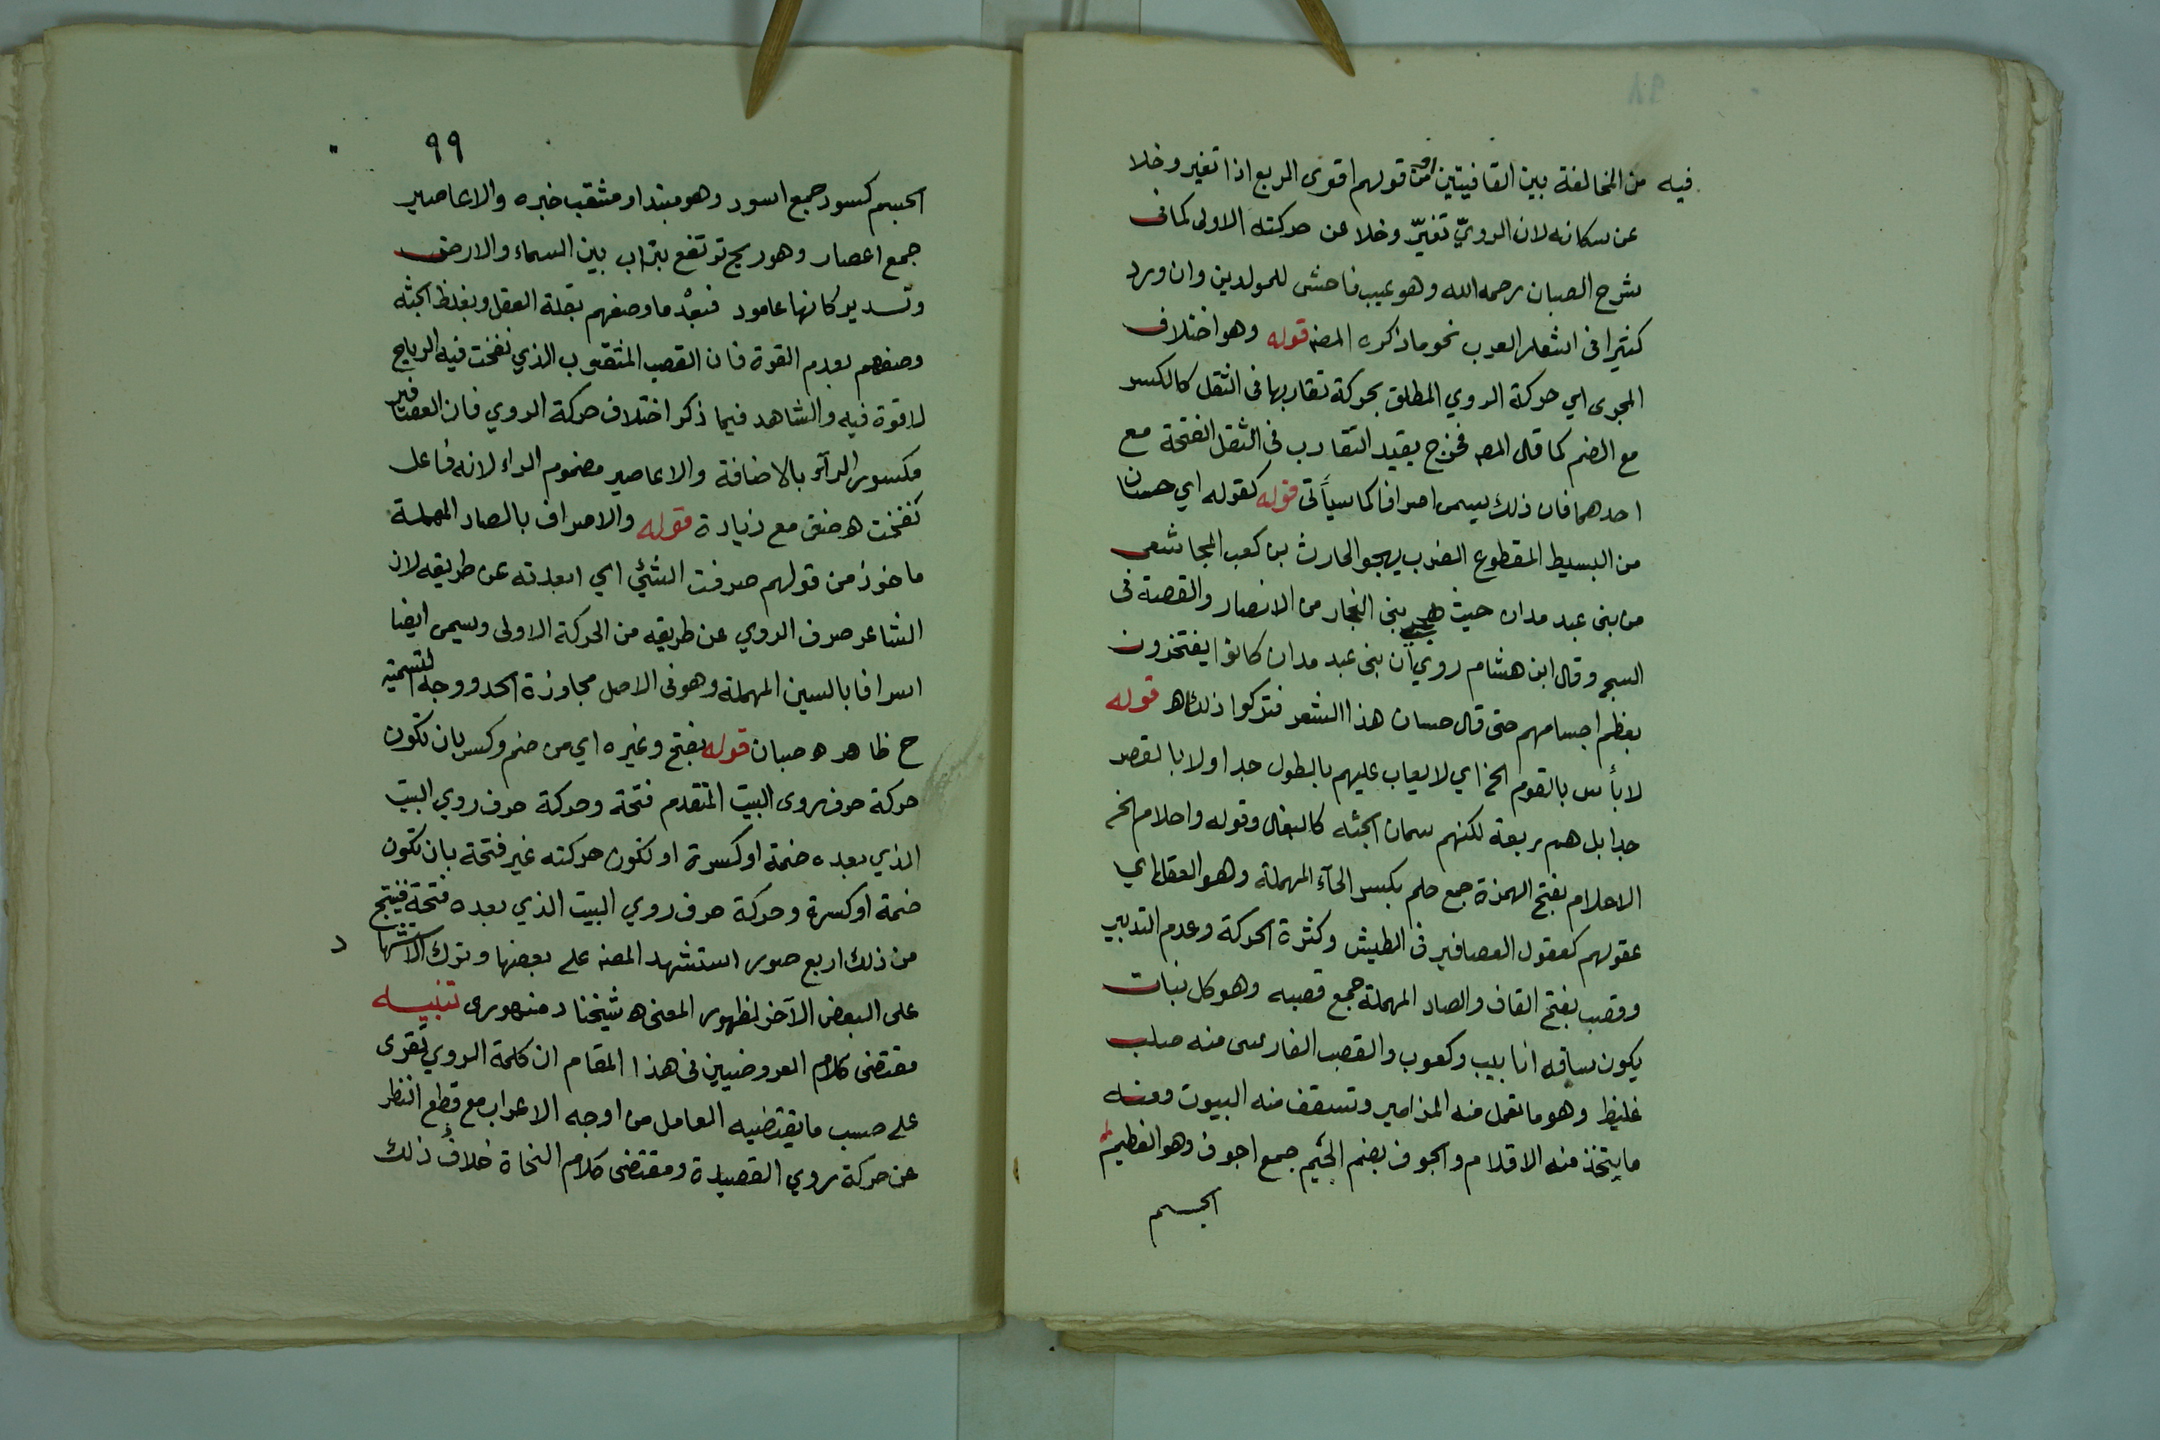 فيه من المخالفة بين القافيتين من قولهم اقوى الربع اذا تغير وخلا
عن سكانه لان الرويّ تغيّر وخلا عن حركته الاولى كما فى
شرح الصبان رحمه الله وهو عيب فاحش للمولدين وان ورد
كثيرا فى اشعار العرب نحو ما ذكره المصـ قوله وهو اختلاف
المجرى اي حركة الروي المطلق بحركة تقاربها فى الثقل كالكسر
مع الضم كما قال المصـ فخرج بقيد التقارب فى الثقل الفتحة مع
احدهما فان ذلك يسمى اصرافا كما سيأتى قوله كقوله اي حسان
من البسيط المقطوع الضرب يهجو الحارث بن كعب المجاشعى
من بنى عبد مدان حيث هجى بنى النجار من الانصار والقصة فى
السير وقال ابن هشام روي ان بنى عبد مدان كانوا يفتخرون
بعظم اجسامهم حتى قال حسان هذا الشعر فتركوا ذلك اهـ قوله
لا بأس بالقوم الخ اي لا يعاب عليهم بالطول جدا ولا بالقصر
جدا بل هم ربعة لكنهم سمان الجثه كالبغال وقوله واحلام الخ
الاحلام بفتح الهمزة جمع حلم بكسر الحآء المهملة وهو العقل اي
عقولهم كعقول العصافير فى الطيش وكثرة الحركة وعدم التدبير
وقصب بفتح القاف والصاد المهملة جمع قصبه وهو كل نبات
يكون ساقه انابيب وكعوب والقصب الفارسى منه صلب
غليظ وهو ما تعمل منه المزامير وتسقف منه البيوت ومنه
ما يتخذ منه الاقلام والجوف بضم الجيم جمع اجوف وهو العظيم
الجسم
٩٩
الجسم كسود جمع اسود وهو مبتدا ومثقب خبره والاعاصير
جمع اعصار وهو ريح ترتفع بتراب بين السماء والارض
وتسدير كانها عامود فبعد ما وصفهم بقلة العقل وبغلظ الجثه
وصفهم بعدم القوة فان القصب المثقوب الذي نفخت فيه الرياح
لا قوة فيه والشاهد فيما ذكر اختلاف حركة الروي فان العصافير
مكسور الرآء بالاضافة والاعاصير مضموم الراء لانه فاعل
نفخت اهـ حفنى مع زيادة قوله والاصراف بالصاد المهملة
ماخوذ من قولهم صرفت الشئ اي ابعدته عن طريقه لان
الشاعر صرف الروي عن طريقه من الحركة الاولى ويسمى ايضا
اسرافا بالسين المهملة وهو فى الاصل مجاوزة الحد ووجه التسمية
ح ظاهر اهـ صبان قوله بفتح وغيره اي من ضم وكسر بان تكون
حركة حرف روى البيت المتقدم فتحة وحركة حرف روي البيت
الذي بعده ضمة او كسرة او تكون حركته غير فتحة بان تكون
ضمة او كسرة وحركة حرف روي البيت الذي بعده فتحة فينتج
من ذلك اربع صور استشهد المصنـ على بعضها وترك الاستشهاد
على البعض الآخر لظهور المعنى اهـ شيخنا دمنهورى تنبيه
مقتضى كلام العروضيين فى هذا المقام ان كلمة الروي تقرى
على حسب ما يقتضيه العامل من اوجه الاعراب مع قطع النظر
عن حركة روي القصيدة ومقتضى كلام النحاة خلاف ذلك